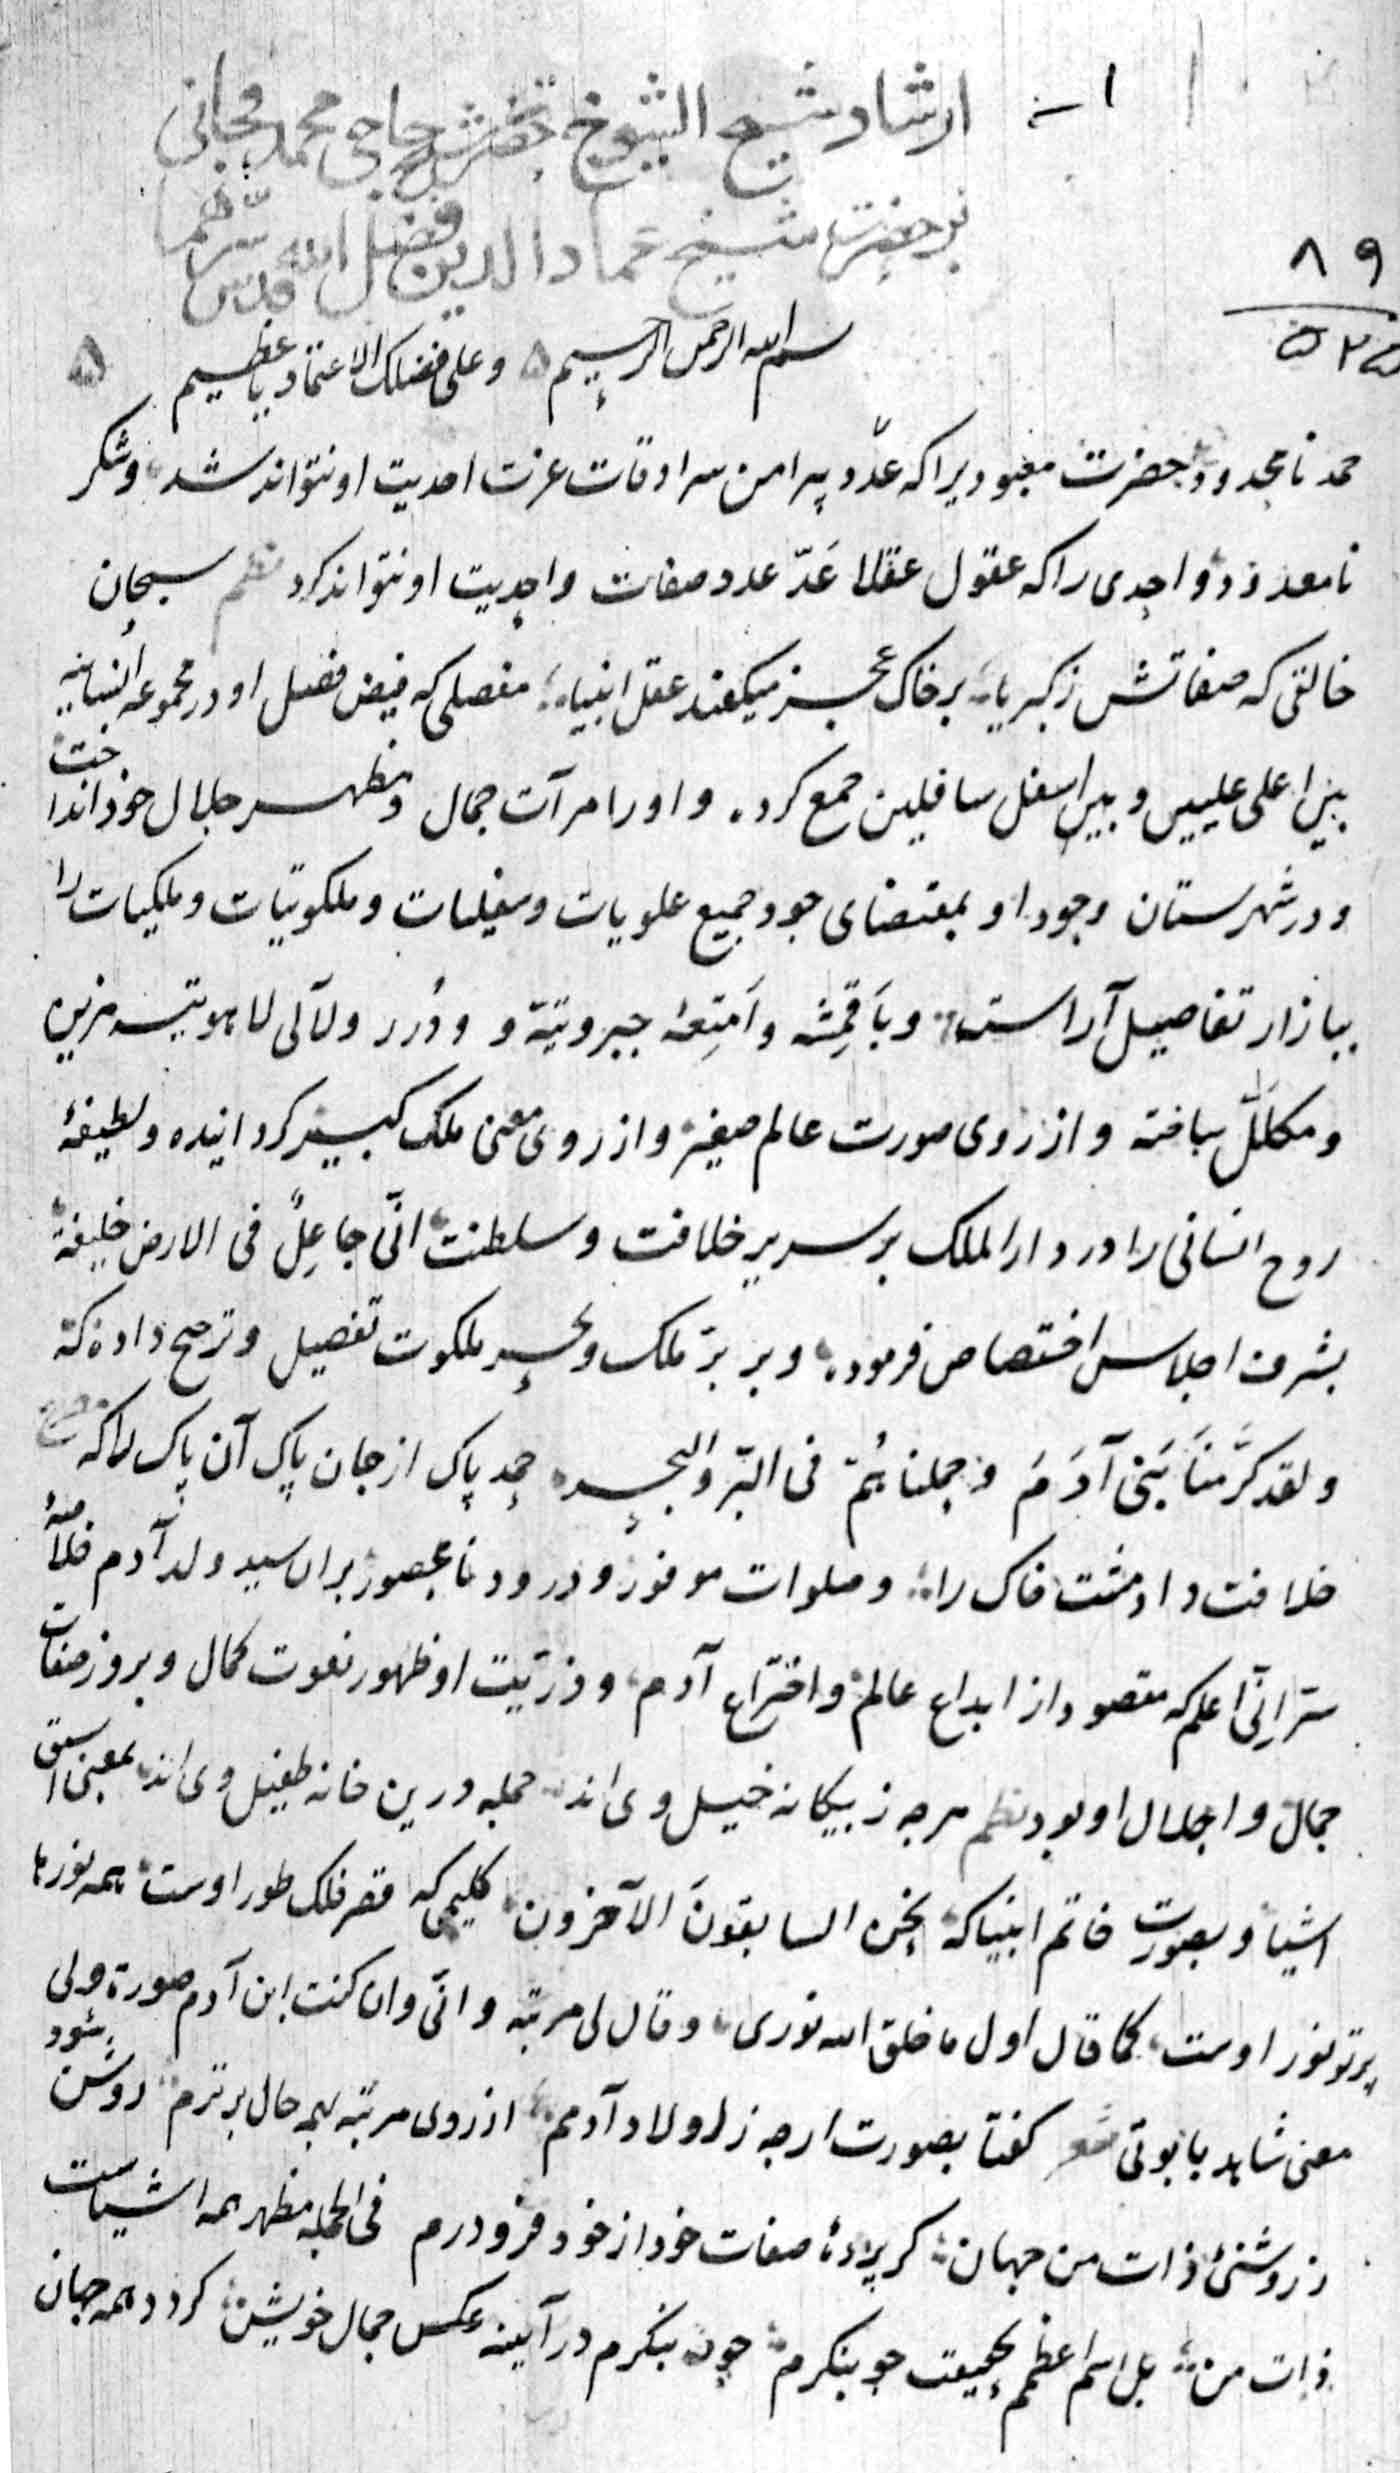 ۱-
ارشاد شیخ الشیوخ حضرت شیخ حاجی محمد
بر حضرت شیخ عماد الدین فضل الله قدس سرهما
۸۹
۵۲۵
بسم الله الرحمن الرحیم و علی فضلک الاعتماد یا عظیم
حمد نامحدود حضرت معبودیرا که عدّ و پیرامن سرادقات عزت احدیت او نتواند شد و شکر
نامعدود واجدی را که عقول عقلا عَدّ عدد صفات واحدیت او نتواند کرد نظم سبحان
خالقی که صفاتش ز کبریا بر خاک عجز میکفند عقل انبیا مفصلی که فیض فضل او در مجموعه انسانیه
بین اعلی علیین و بین اسفل سافلین جمع کرد و او را مرآت جمال و مظهر جلال خود انداخت
و در شهرستان وجود او بمقتضای جود جمیع علویات و سفلیات و ملکوتیات و ملکیات را
ببازار تفاصیل آراسته و باَقمِشه و اَمتِعهٔ جبروتیّة و و دُرر و لآلی لاهوتیه مزین
و مکلَّل ساخته و از روی صورت عالم صغیر و از روی معنی ملک کبیر کردانیده و لطیفهٔ
روح انسانی را در دار الملک بر سریر خلافت و سلطنت انّی جاعِلٌ فی الارض خلیفة
بشرف اجلاس اختصاص فرموده و بر برّ ملک و بحر ملکوت تفضیل و ترجیح داده که
و لقد کرَّمنَا بَنی آدَمَ و حملناهُم فی البَرّ والبحر حمد پاک از جان پاک آن پاک را که
خلافت داد مشت خاک را و صلوات موفور و درود نامحصور بران سید ولد آدم خلاصهٔ
سرّ اِنّی اعلم که مقصود از ابداع عالم و اختراع آدم و ذرّیت او ظهور نعوت کمال و بروز صفات
جمال و اجلال او بود نظم هرچه ز بیکانه خیل وی اند جمله درین خانه طفیل وی اند بمعنی اسبق
اشیا و بصورت خاتم انبیا که نحن السابقونَ الآخرون کلیمی که قصر فلک طور اوست همه نورها
پرتو نور اوست کما قال اول ما خلق الله نوری و قال لی مرتبه و انّی وان کنت ابن آدم صورة ولی
معنی شاهد بابوتی شعر کفتا بصورت ارچه ز اولاد آدمم از روی مرتبه بهمه حال برترم روشن شود
ز روشنیٔ ذات من جهان کر پردهٔ صفات خود از خود فرو درم فی الجمله مظهر همه اشیاست
ذات من بل اسم اعظمم بحقیقت چو بنکرم چون بنکرم در آینه عکس جمال خویش کردد همه جهان